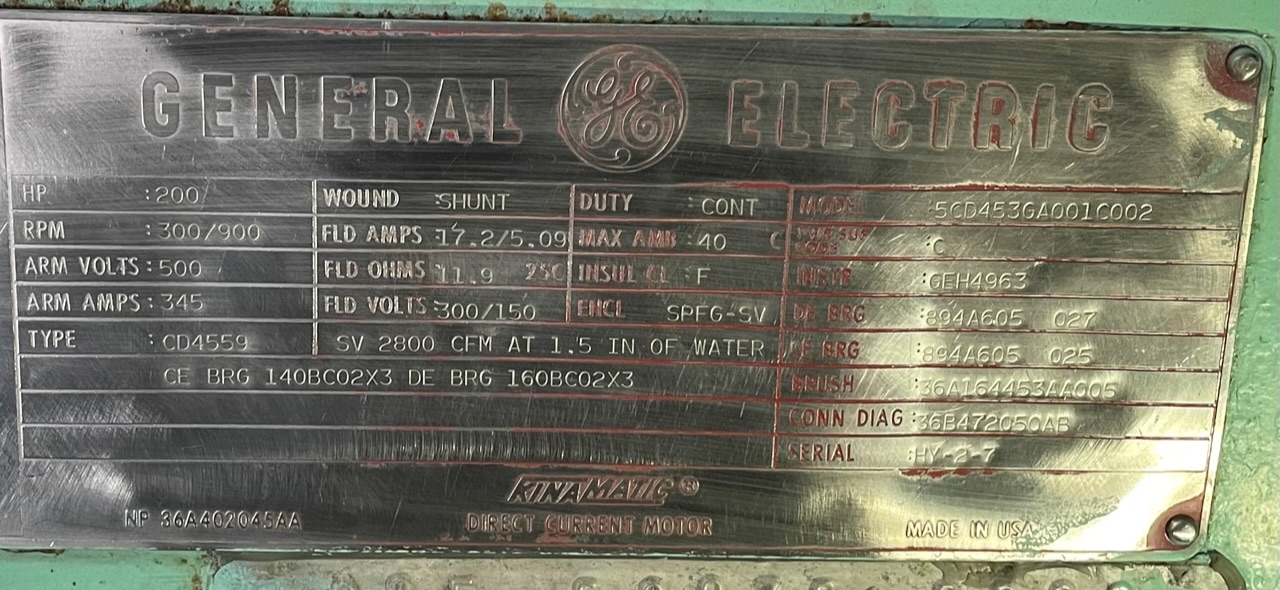 GENERAL GE ELECTRIC
HP :200 WOUND :SHUNT DUTY :CONT MODEL :5CD453GA001C002
RPM :300/900 FLD AMPS :17.2/5.09 MAX AMB :40 C PWR SUP CODE :C
ARM VOLTS :500 FLD OHMS :11.9 25C INSUL CL :F INSTR :GEH4963
ARM AMPS :345 FLD VOLTS :300/150 ENCL SPFG-SV DE BRG :894A605 027
TYPE :CD4559 SV 2800 CFM AT 1.5 IN OF WATER CE BRG :894A605 025
CE BRG 140BC02X3 DE BRG 160BC02X3 BRUSH :36A164453AA005
CONN DIAG :36B472050AB
SERIAL :HY-2-7
KINAMATIC®
NP 36A402045AA DIRECT CURRENT MOTOR MADE IN USA